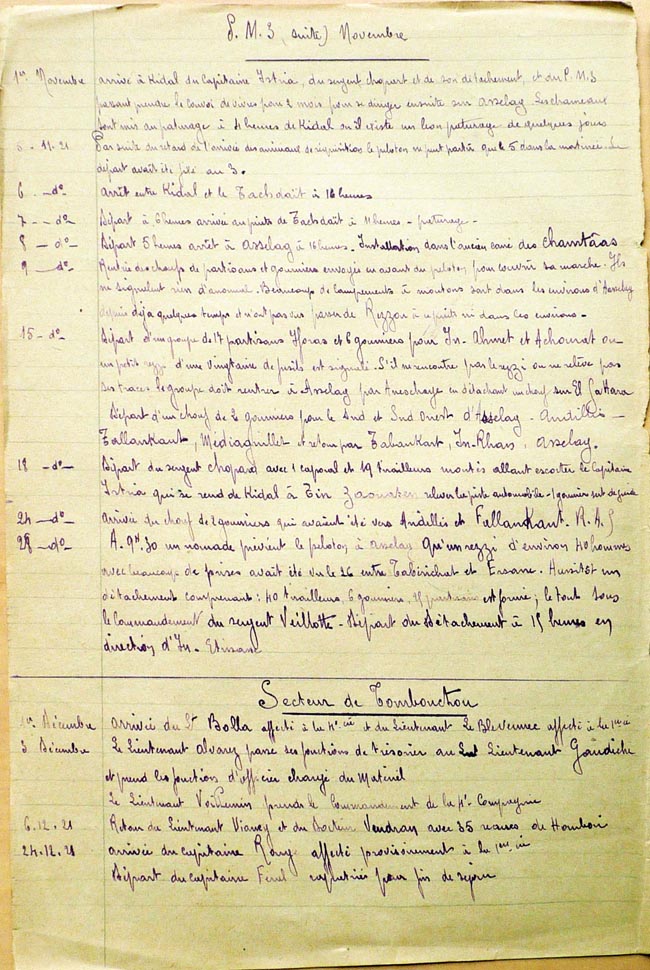 P. M. 3 (suite) Novembre
1er Novembre arrivé à Kidal du Capitaine Istria, du sergent chopard et de son détachement, et du P.M.3
passant prendre le convoi de vivres pour 2 mois pour se diriger ensuite sur Asselag. Les chameaux
sont mis au pâturage à 4 heures de Kidal ou il existe un bon pâturage de quelques jours
5.11.21 Par suite du retard de l'arrivée des animaux de réquisition le peloton ne peut partir que le 5 dans la matinée. Le
départ avait été fixé au 3.
6 - do - Arrêt entre Kidal et le Tachdaït à 16 heures
7 - do - Départ à 6 heures arrivé au puits de Tachdaït à 11 heures - pâturage -
8 - do - Départ 5 heures arrêt à Asselag à 16 heures. Installation dans l'ancien carré des chambâas
9 - do - Rentrée des choufs de partisans et goumiers envoyés en avant du peloton pour couvrir sa marche. Ils
ne signalent rien d'anormal. Beaucoup de campements à moutons sont dans les environs d'Asselag
depuis déjà quelques temps et n'ont pas vus passer de Rezzou à ce puits ni dans les environs -
15 - do - Départ d'un groupe de 17 partisans Iforas et 6 goumiers pour In-Ahmet et Achourat ou
un petit rezzi d'une vingtaine de fusils est signalé. S'il ne rencontre pas le rezzi ou ne relève pas
ses traces le groupe doit rentrer à Asselag par Anechaye en détachant un chouf sur El Gattara
Départ d'un chouf de 2 goumiers pour le Sud et Sud Ouest d'Asselag - Andillès -
Fallankant, et retour par Tabankort, In-Rhars, Asselag.
18 - do - Départ du sergent chopard avec 1 caporal et 19 tirailleurs montés allant escorter le Capitaine
Istria qui se rend de Kidal à Tin Zaouaten relever la piste automobile - 1 goumier sert de guide
24 - do - Arrivée du chouf de 2 goumiers qui avaient été vers Andillès et Fallankant. R.A.S
28 - do - A 9h.30 un nomade prévient le peloton à Asselag qu'un rezzi d'environ 40 hommes
avec beaucoup de prises avait été vu le 26 entre Tabirichat et Ersane. Aussitôt un
détachement comprenant : 40 tirailleurs, 6 goumiers, 15 partisans est formé ; le tout sous
le commandement du sergent Veillotte - Départ du Détachement à 15 heures en
direction d'In-
Secteur de Tombouctou
1er Décembre arrivée du Lt Bolla affecté à la 4e cie et du Lieutenant Le Blevennec affecté à la 1ere cie
3 Décembre Le Lieutenant Alvary passe ses fonctions de trésorier au Lieutenant Gaudiche
et prend les fonctions d'officier chargé du Matériel
Le Lieutenant Voillemin prends le Commandement de la 4e Compagnie
6.12.21 Retour du Lieutenant Vianey et du Docteur Vendran avec 35 de Hombori
24.12.21 arrivée du capitaine Rouy affecté provisoirement à la 1ere cie
Départ du capitaine rapatriés pour fin de séjour